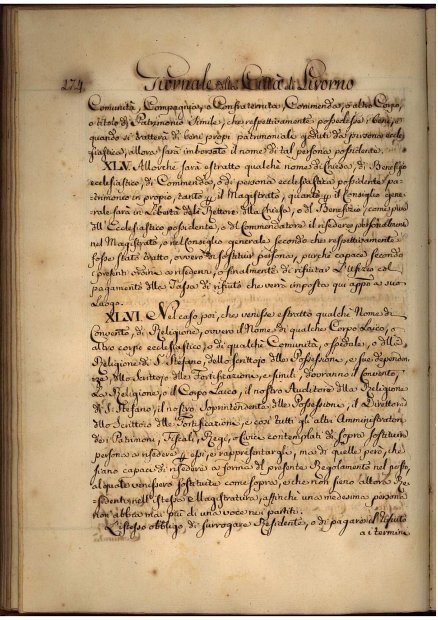 274. Giornale della Città di Livorno
Comunità, Compagnia, o Confraternita, Commenda, o altro Corpo,
o titolo di Patrimonio simile, che respettivamente possedesse i beni, e
quando si tratterà di beni propri patrimoniali goduti da persona eccle
siastica, allora sarà imborsato il nome di tal persona possidente.
XLV. Allorchè sarà estratto qualche nome di Chiesa, di Benefizio
ecclesiastico, di Commenda, o di persona ecclesiastica possidente pa-
trimonio in proprio, tanto p il Magistrato, quanto p il Consiglio gene-
rale sarà in Libertà del Rettore della Chiesa, o del Benefizio, come pure
dell'Ecclesiastico possidente, o del Commendatore il risedere personalmente
nel Magistrato, o nel Consiglio generale secondo che respettivamente
fosse stato tratto, ovvero di sostituir persona, purchè capace secondo
i presenti ordini a risedervi, o finalmente di rifiutar l'Uffizio col
pagamento della Tassa di rifiuto che verrà imposta qui app.o a suo
Luogo.
XLVI. Nel caso poi, che venisse estratto qualche Nome di
Convento, di Religione, ovvero il Nome di qualche Corpo Laico, o
altro corpo ecclesiastico, o di qualche Comunità, o spedale, o della
Religione di S. Stefano, dello scrittojo delle Possessioni, e sue dependen
ze, dello Scrittojo delle Fortificazioni, e simili, dovranno il Convento,
La Religione, o il Corpo Laico, il nostro Auditore della Religione
di S. Stefano, il nostro Soprintendente delle Possessioni, il Direttore
dello Scrittojo delle Fortificazioni, e così tutti gli altri Amministratori
dei Patrimoni, Fiscali, Regi, o Civici contemplati di sopra sostituire
persona a risedere p essi, e rappresentargli, mai di quelle però, che
siano capaci di risedere a forma del presente Regolamento nel posto,
al quale venissero sostituite come sopra, e che non sieno allora Re-
sedenti nell'istesso Magistrato, affinchè una medesima persona
non abbia mai più di una voce nei partiti.
L'istesso obbligo di surrogare Residente, o di pagare il rifiuto
a i termini